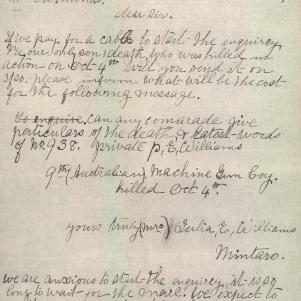 dear Sir.
If we pay for a cable to start the enquirey,
Re our only son's death, who was killed in
action on Oct 4th will you send it on
if so. please inform what will be the cost
for the following message.
To enquire, can any comarade give
particulars of the death & Latest words
of No 938. private P, E, Williams
9th (Australian) Machine Gun Coy.
killed Oct 4th.
yours truly (Mrs) Julia E, Williams
Mintaro.
we are anxious to start the enquirey, it is so
long to wait for the mail. we expect to